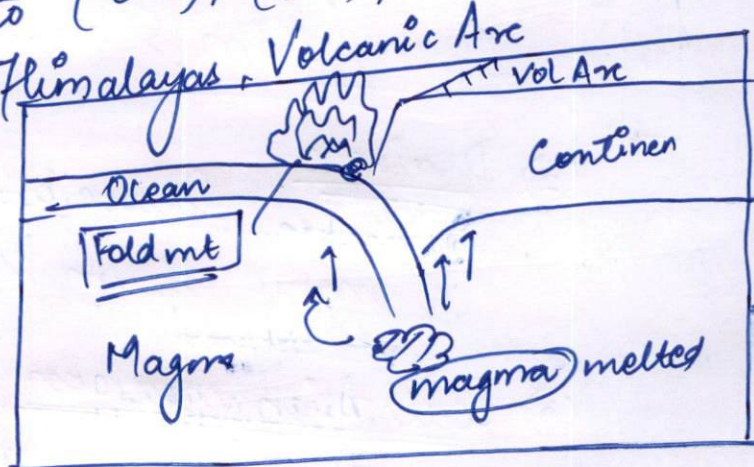 Himalayas, Volcanic Arc
Vol Arc
Continen
Ocean
Fold mt
Magma
magma melted